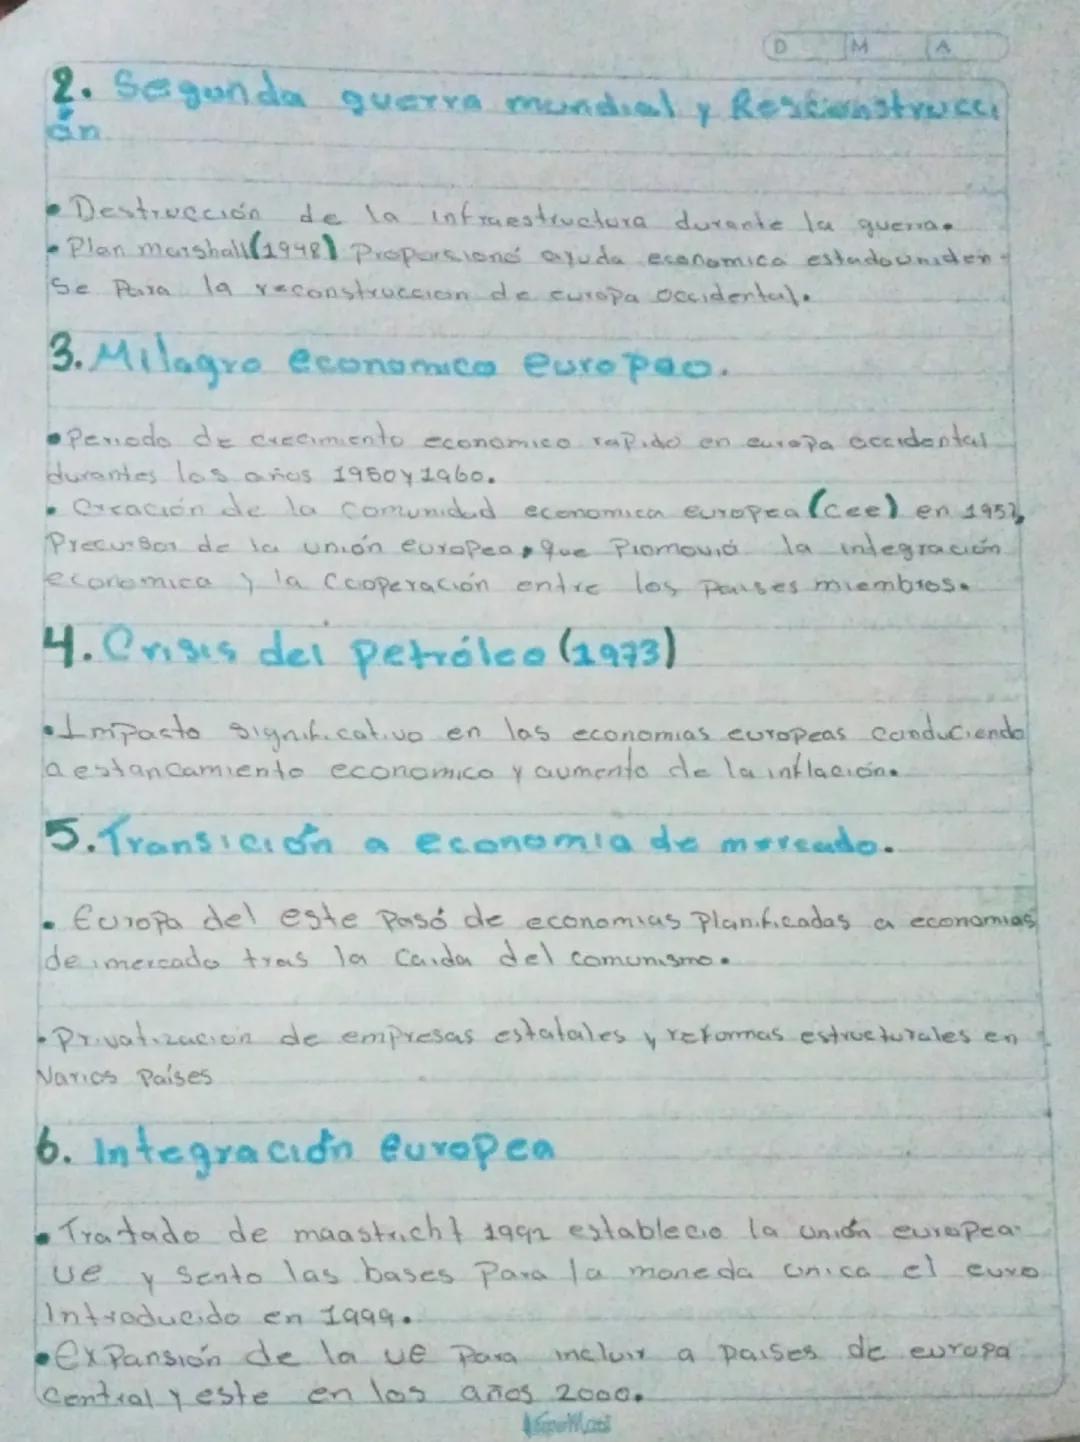 D M A
2. Segunda guerra mundial y Resconstrucci
ón
• Destrucción de la infraestructura durante la guerra.
• Plan marshall (1948) Proporsionó ayuda economica estadouniden-
se Para la reconstruccion de europa occidental.
3. Milagro economico europeo.
• Periodo de crecimiento economico rapido en europa occidental
durantes los años 1950 y 1960.
• Creación de la comunidad economica europea (cee) en 1957,
Precursor de la unión europea, que Promovió la integración
economica y la cooperación entre los paises miembros.
4. Crisis del petróleo (1973)
• Impacto significativo en las economias europeas conduciendo
a estancamiento economico y aumento de la inflación.
5. Transición a economia de mercado.
• Europa del este Pasó de economias Planificadas a economias
de mercado tras la caida del comunismo.
• Privatización de empresas estatales y reformas estructurales en
Varios Países
6. Integración europea
• Tratado de maastricht 1992 establecio la unión europea
ue y sento las bases Para la moneda unica el euro
Introducido en 1999.
• Expansión de la ue Para incluir a paises de europa
Central y este en los años 2000.